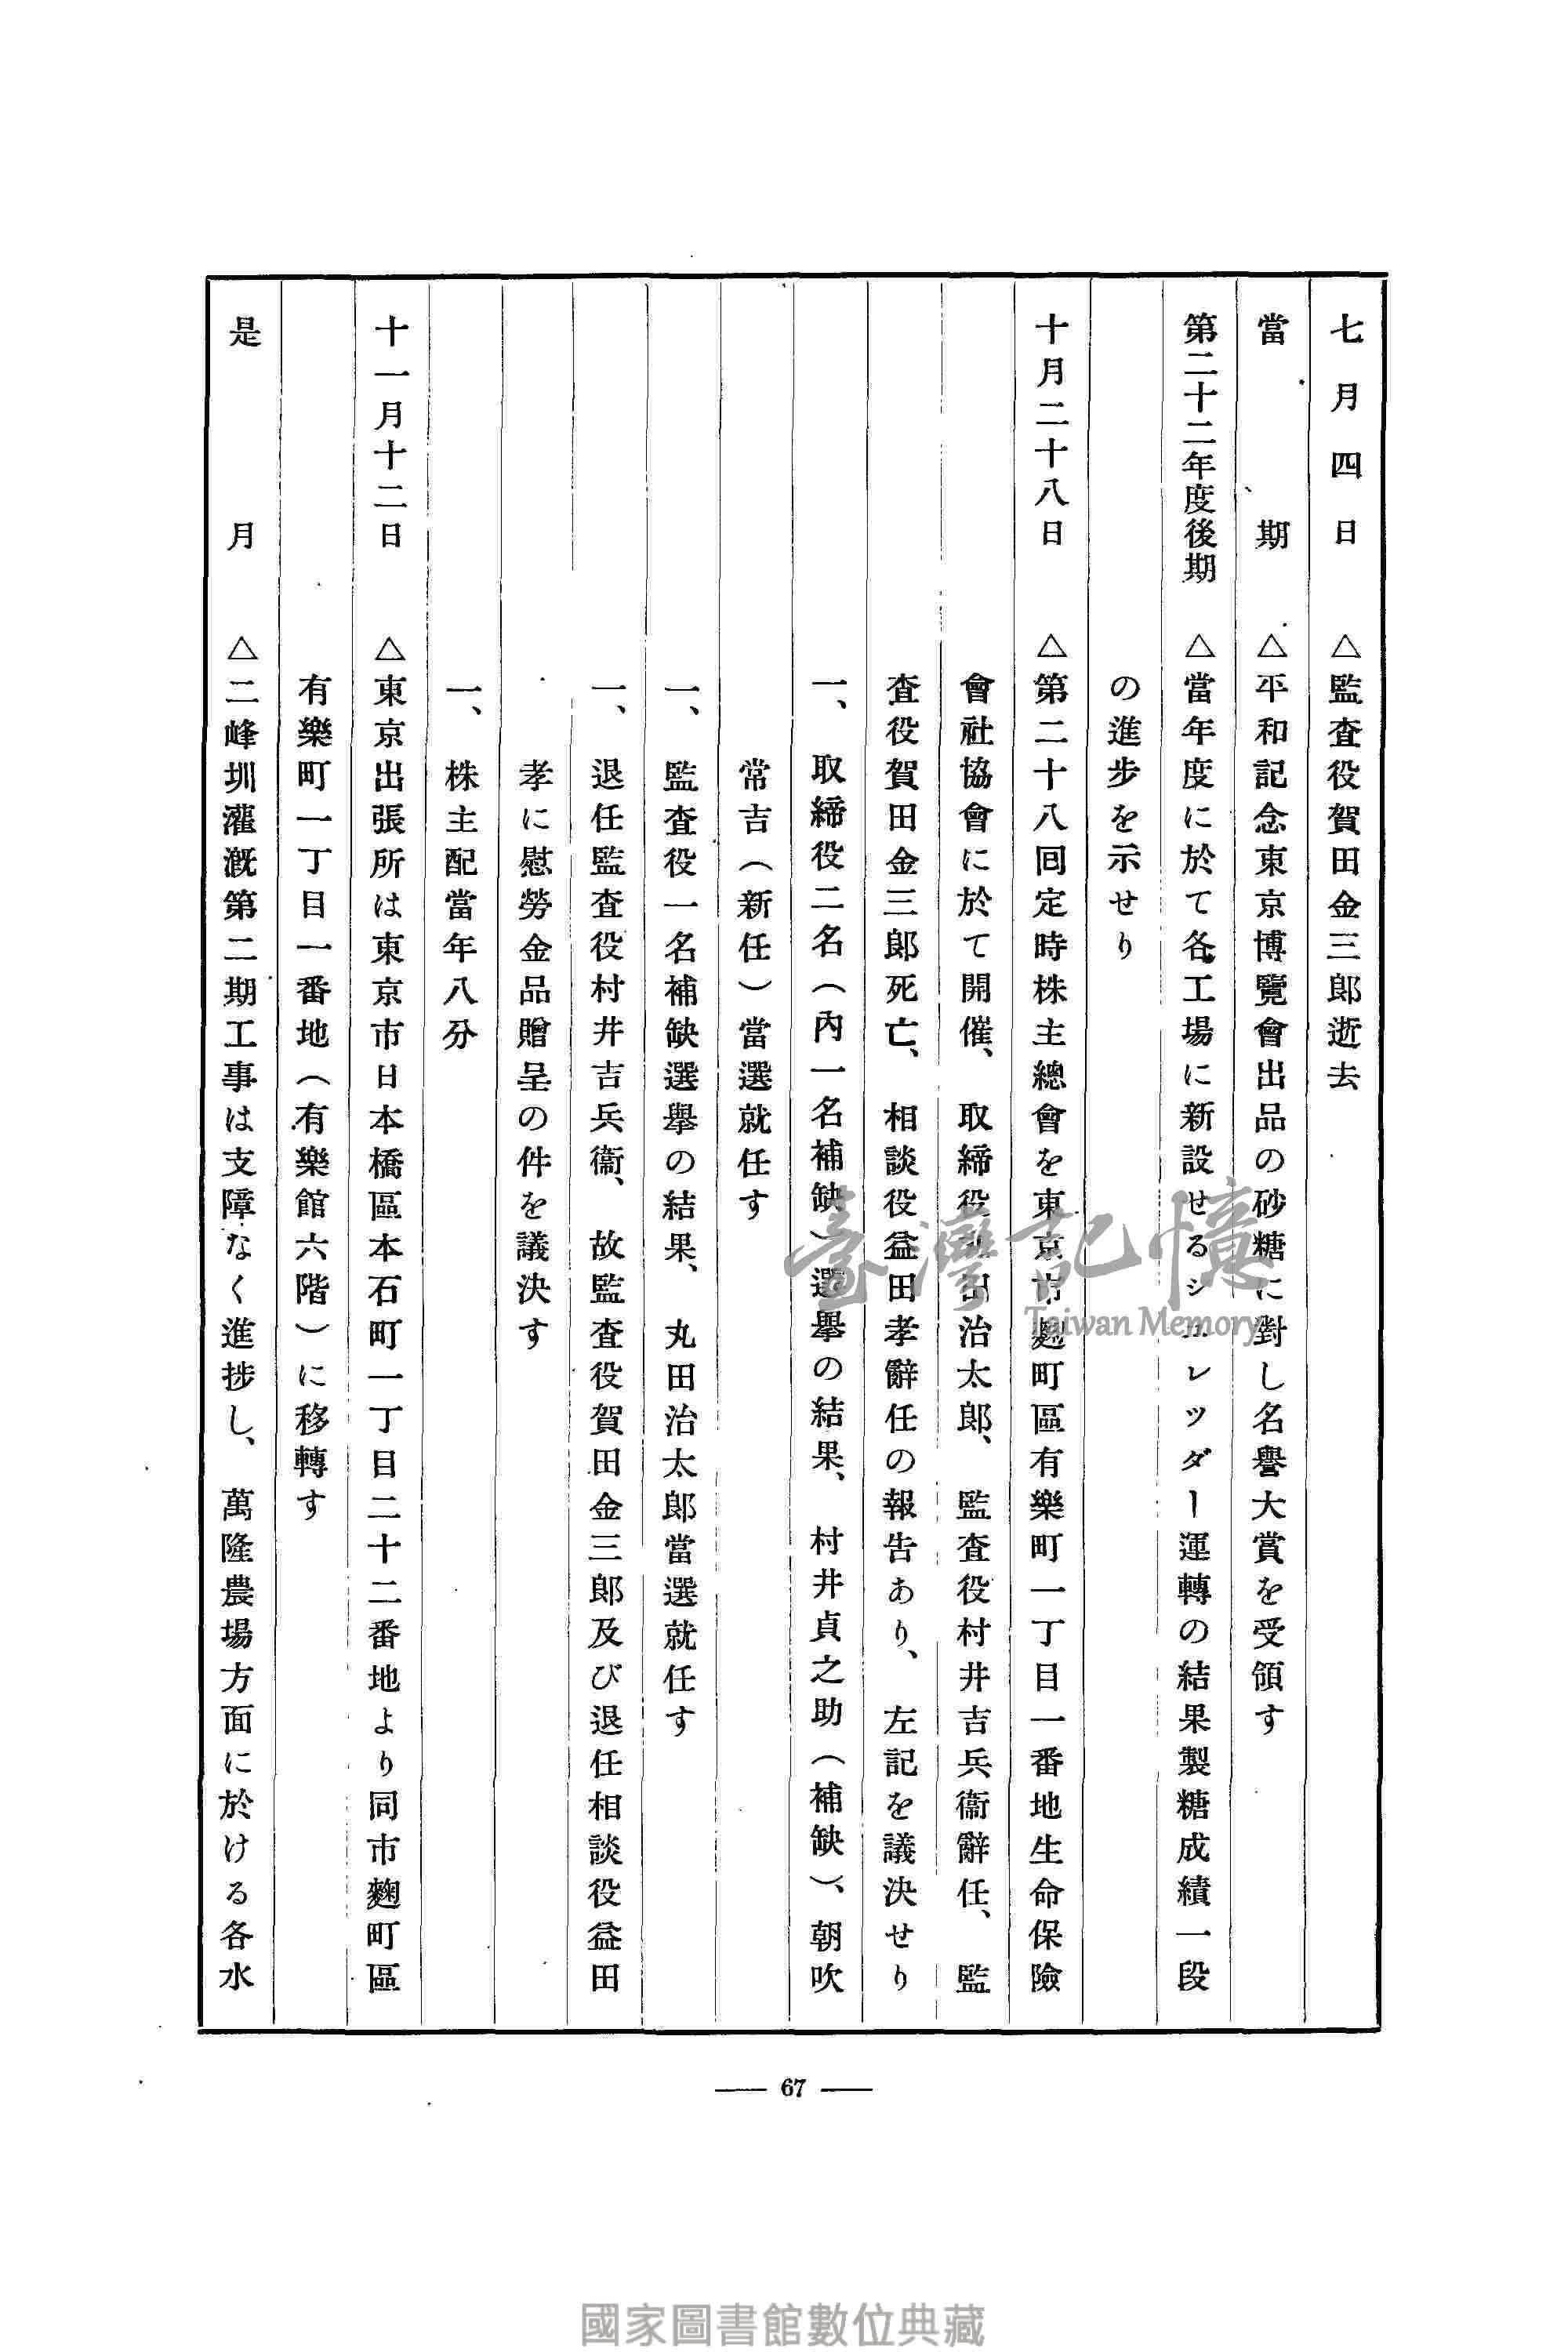 七月四日　△監査役賀田金三郎逝去
當期　△平和記念東京博覽會出品の砂糖に對し名譽大賞を受領す
第二十二年度後期　△當年度に於て各工場に新設せるシュレッダー運轉の結果製糖成績一段
の進步を示せり
十月二十八日　△第二十八回定時株主總會を東京市麴町區有樂町一丁目一番地生命保險
會社協會に於て開催、取締役田治太郎、監査役村井吉兵衞辭任、監
査役賀田金三郎死亡、相談役益田孝辭任の報告あり、左記を議決せり
一、取締役二名（內一名補缺）選擧の結果、村井貞之助（補缺）、朝吹
常吉（新任）當選就任す
一、監査役一名補缺選擧の結果、丸田治太郎當選就任す
一、退任監査役村井吉兵衞、故監査役賀田金三郎及び退任相談役益田
孝に慰勞金品贈呈の件を議決す
一、株主配當年八分
十一月十二日　△東京出張所は東京市日本橋區本石町一丁目二十二番地より同市麴町區
有樂町一丁目一番地（有樂館六階）に移轉す
是月　△二峰圳灌漑第二期工事は支障なく進捗し、萬隆農場方面に於ける各水
— 67 —
臺灣記憶
Taiwan Memory
國家圖書館數位典藏